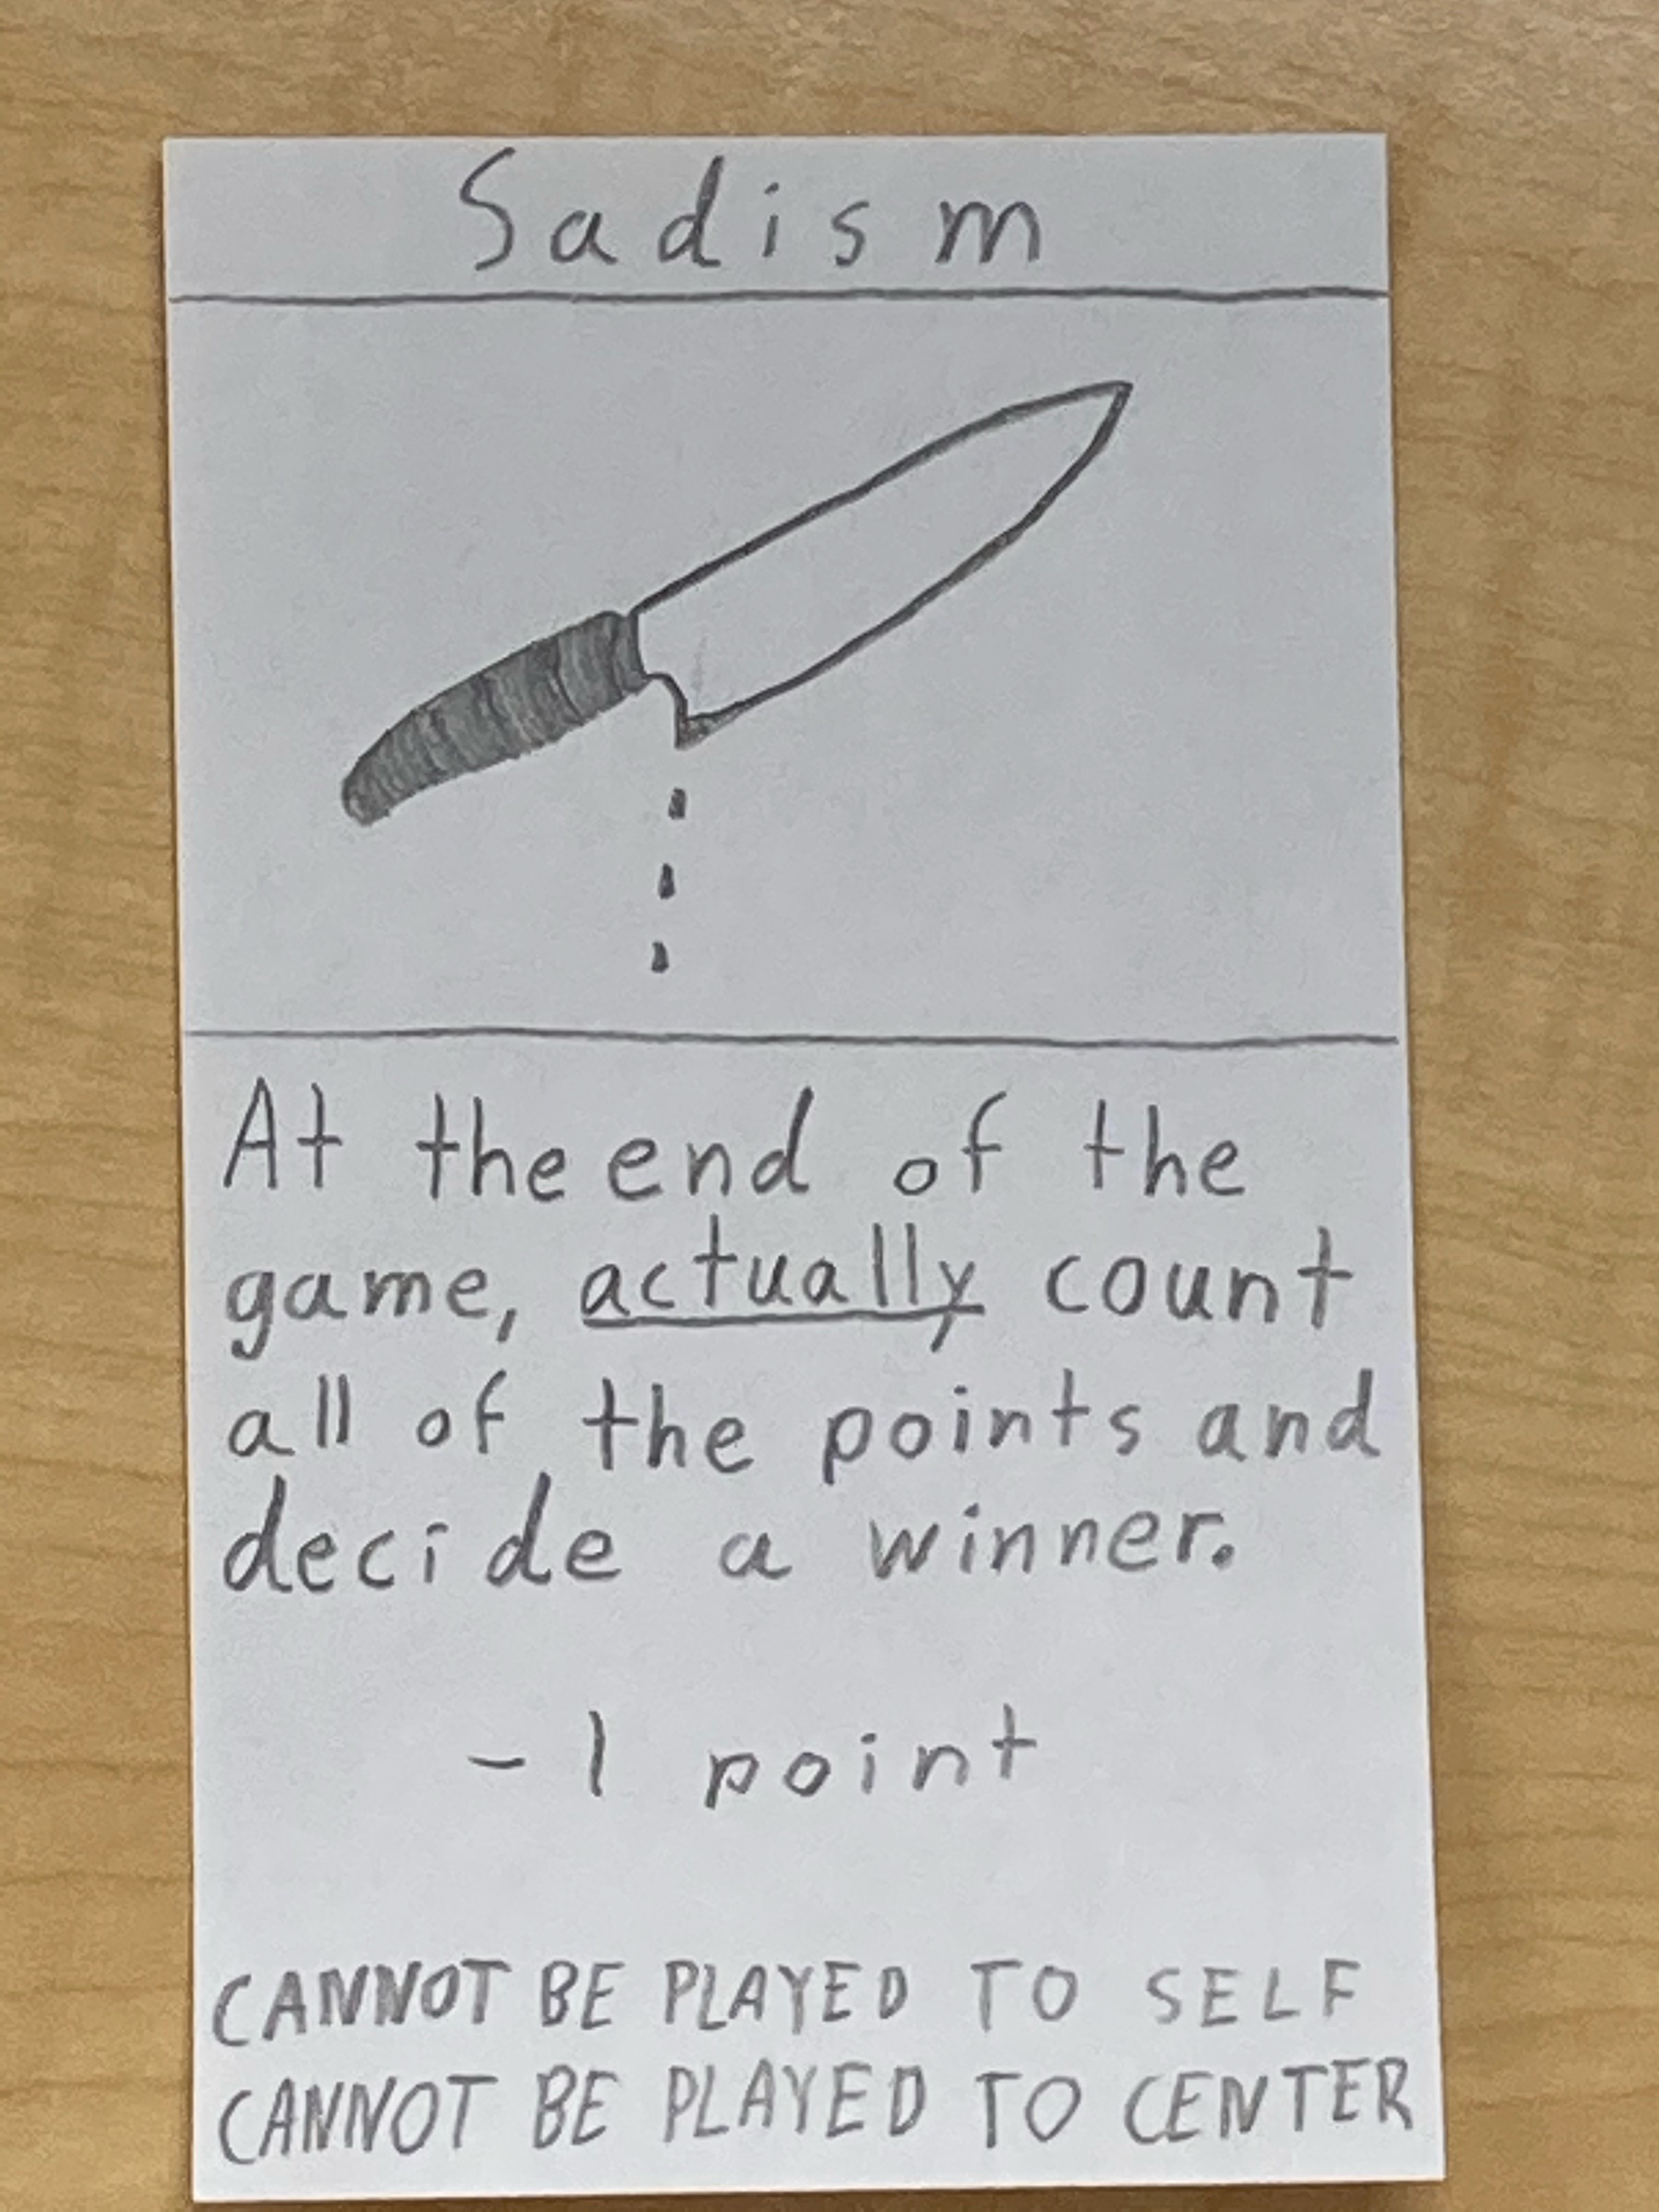 Sadism
At the end of the
game, actually count
all of the points and
decide a winner.
-1 point
CANNOT BE PLAYED TO SELF
CANNOT BE PLAYED TO CENTER